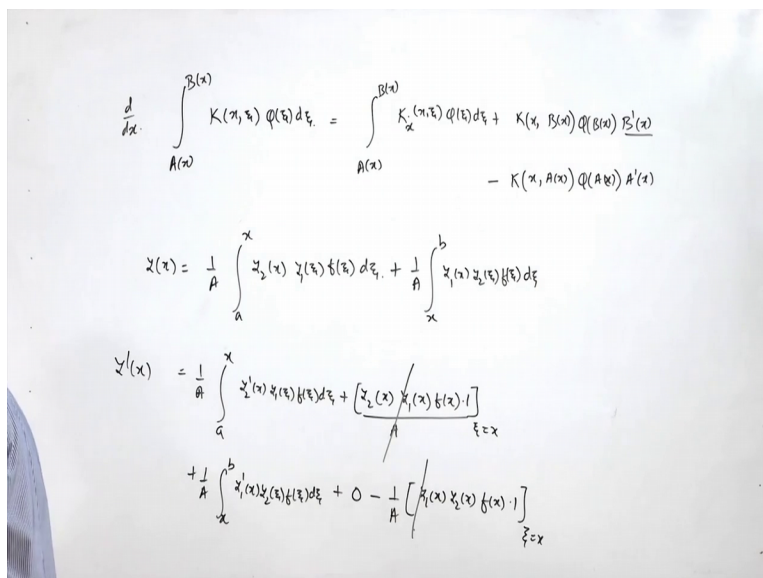 d/dx. ∫_{A(x)}^{B(x)} K(x,ξ) φ(ξ) dξ. = ∫_{A(x)}^{B(x)} K_x(x,ξ) φ(ξ) dξ + K(x, B(x)) φ(B(x)) B'(x)
− K(x, A(x)) φ(A(x)) A'(x)
y(x) = 1/A ∫_a^x y₂(x) y₁(ξ) f(ξ) dξ. + 1/A ∫_x^b y₁(x) y₂(ξ) f(ξ) dξ
y'(x) = 1/A ∫_a^x y₂'(x) y₁(ξ) f(ξ) dξ + [y₂(x) y₁(x) f(x)·1]/A ξ=x
+ 1/A ∫_x^b y₁'(x) y₂(ξ) f(ξ) dξ + 0 − 1/A [y₁(x) y₂(x) f(x)·1] ξ=x